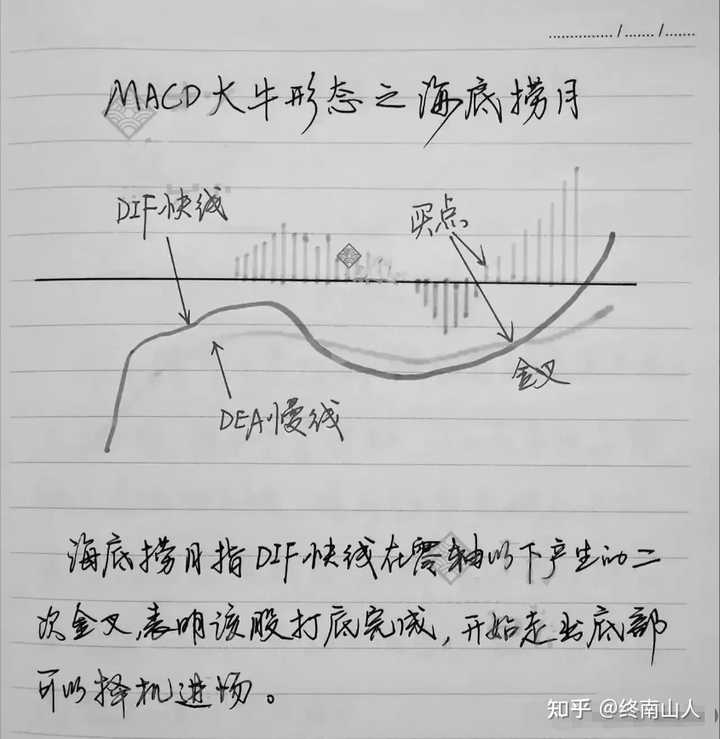 ............... / ....... / .......
MACD大牛形态之海底捞月
DIF快线
买点
金叉
DEA慢线
海底捞月指DIF快线在零轴以下产生的二
次金叉,表明该股打底完成,开始走出底部
可以择机进场。
知乎 @终南山人